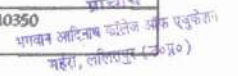 10350
भगवान आदिनाथ कॉलेज ऑफ एजुकेशन
महर्रा, ललितपुर (उ०प्र०)